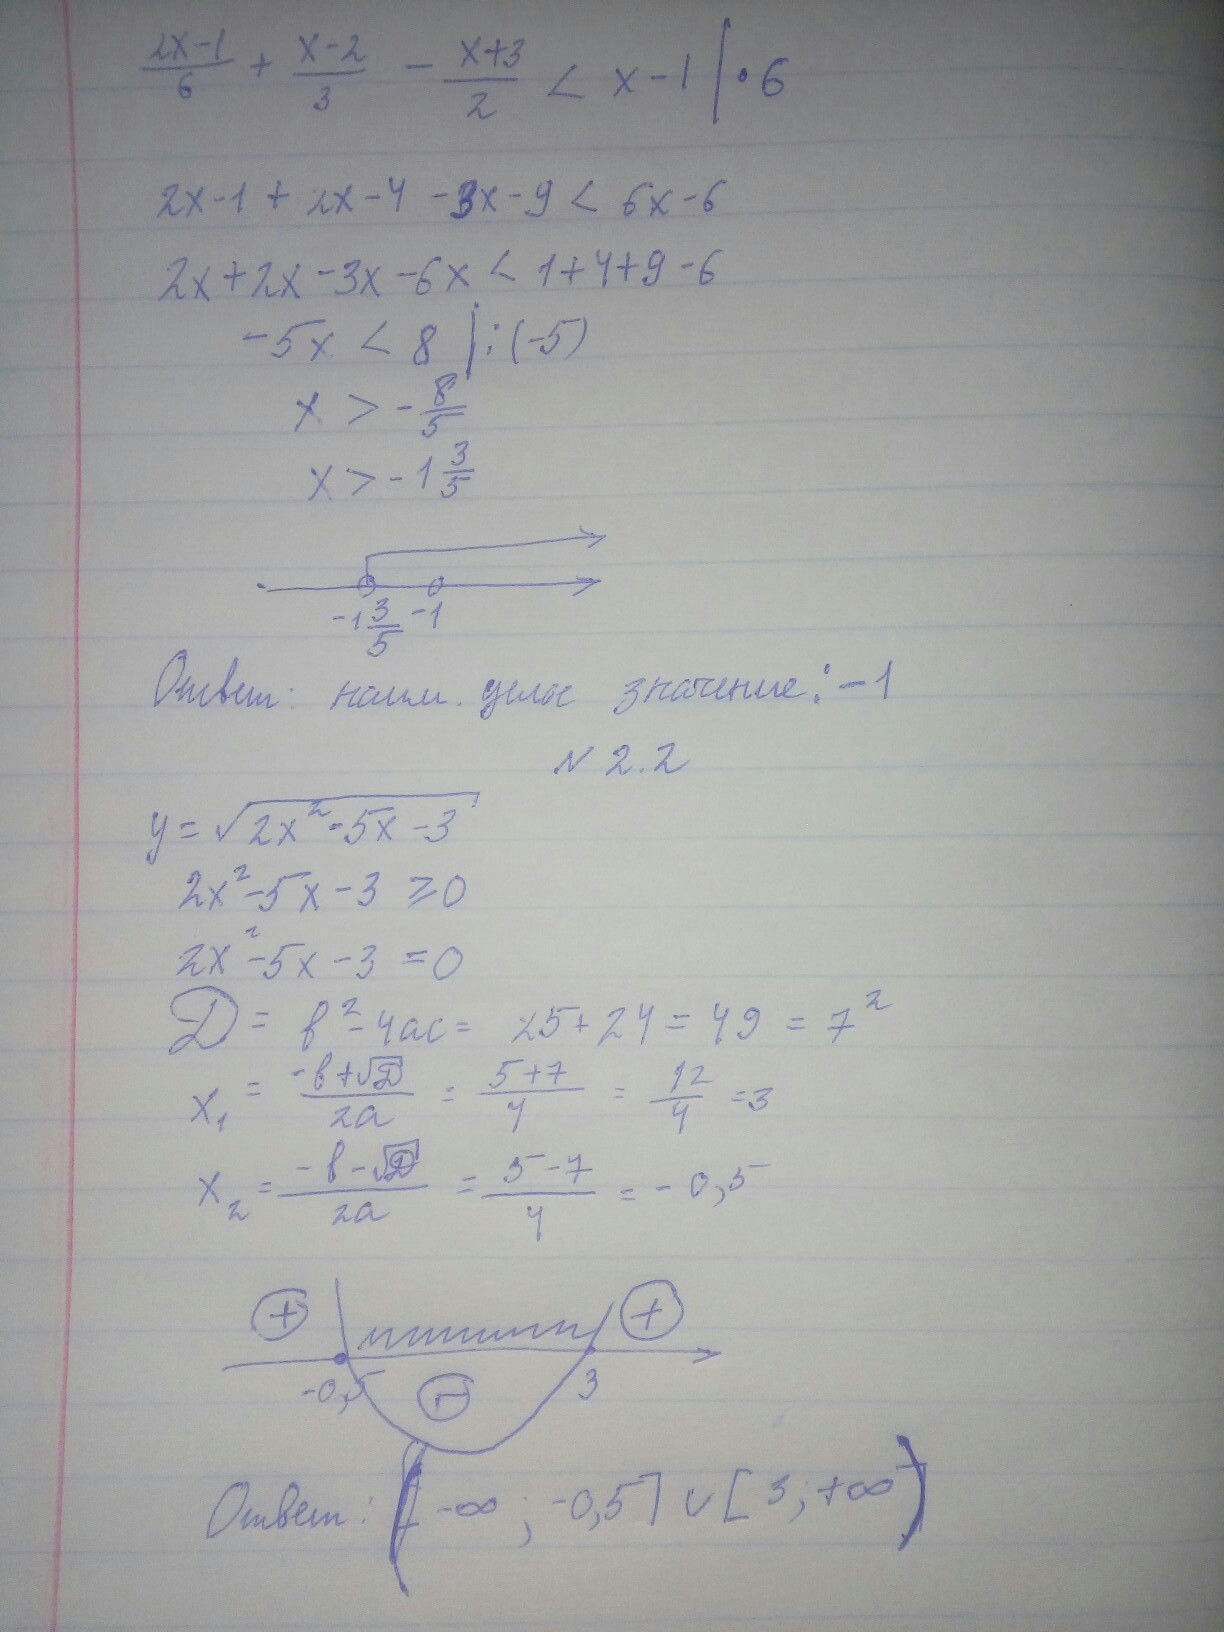 (2x-1)/6 + (x-2)/3 - (x+3)/2 < x-1 | • 6
2x-1 + 2x-4 -3x-9 < 6x-6
2x+2x-3x-6x < 1+4+9-6
-5x < 8 | : (-5)
x > -8/5
x > -1 3/5
-1 3/5 -1
Ответ: наим. целое значение: -1
N 2.2
y = √(2x²-5x-3)
2x²-5x-3 ≥ 0
2x²-5x-3 = 0
D = b²-4ac = 25+24 = 49 = 7²
x₁ = (-b+√D)/2a = (5+7)/4 = 12/4 = 3
x₂ = (-b-√D)/2a = (5-7)/4 = -0,5
+ +
-0,5 - 3
Ответ: (-∞; -0,5] ∪ [3; +∞)